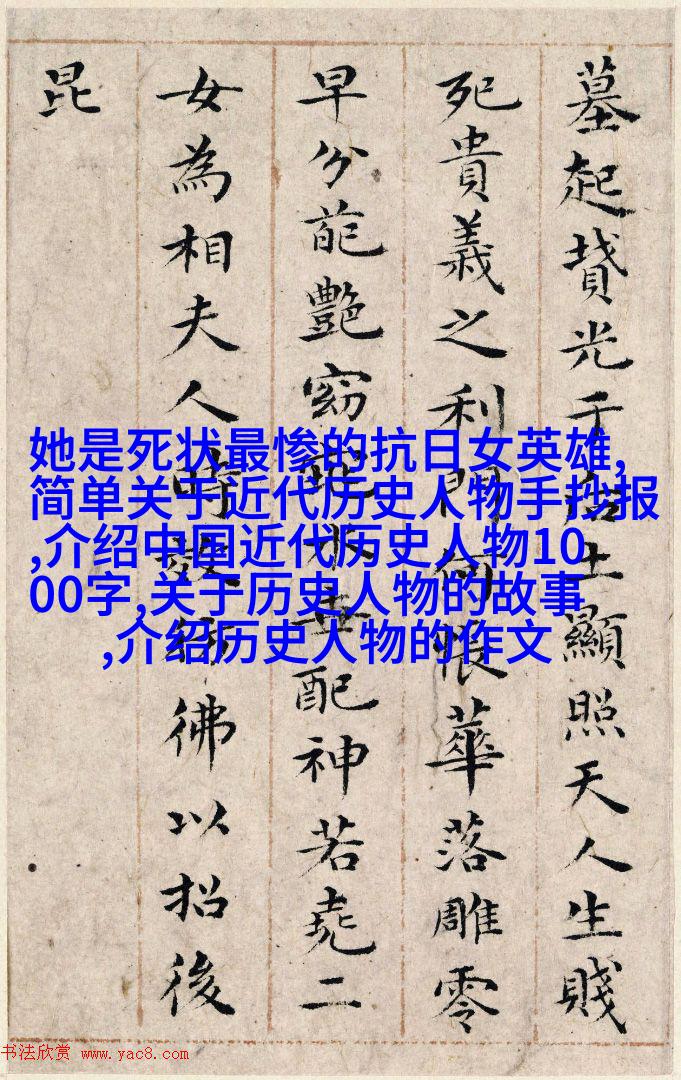 墓起墳光于后土顯照天人生賤
死貴義之利門何悵華落雕零
早分葩艷窈窕永世配神若堯二
女為相夫人時效彷彿以招後
昆
她是死状最惨的抗日女英雄,
简单关于近代历史人物手抄报
,介绍中国近代历史人物10
00字,关于历史人物的故事
,介绍历史人物的作文
书法欣赏 www.yac8.com